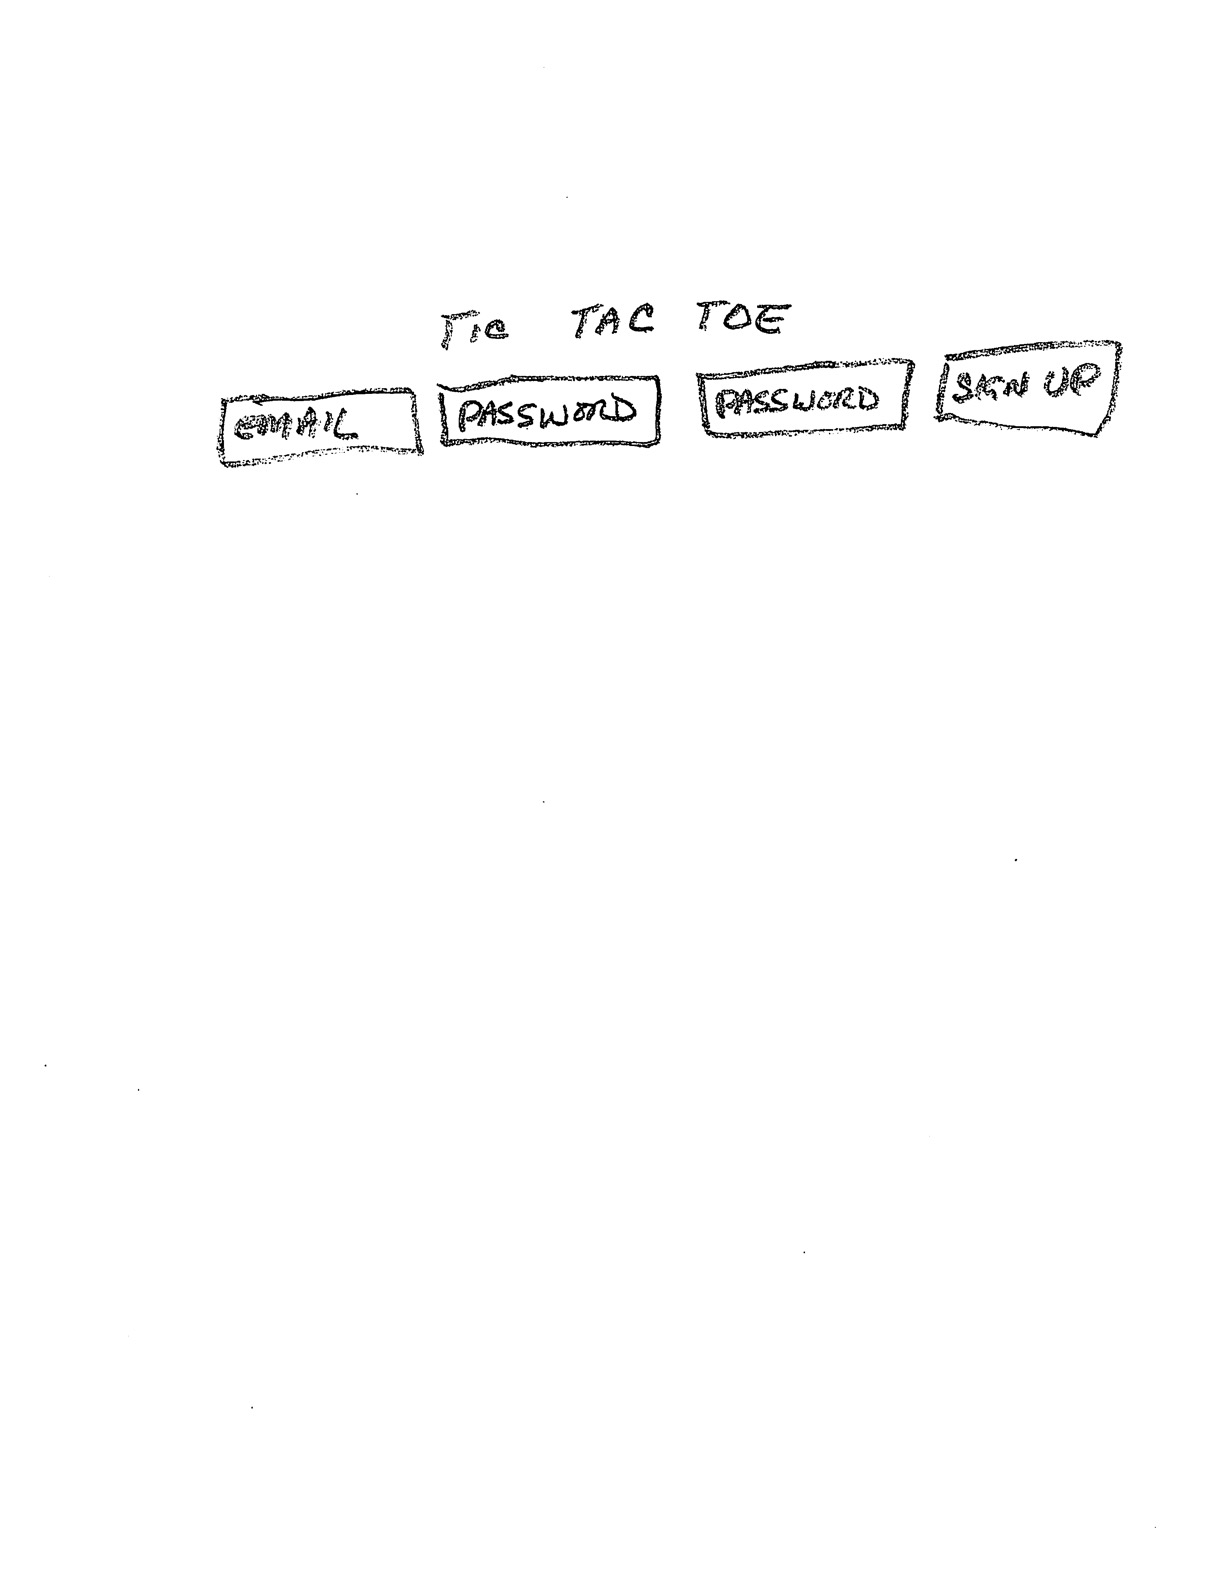 TIC TAC TOE
EMAIL PASSWORD PASSWORD SIGN UP